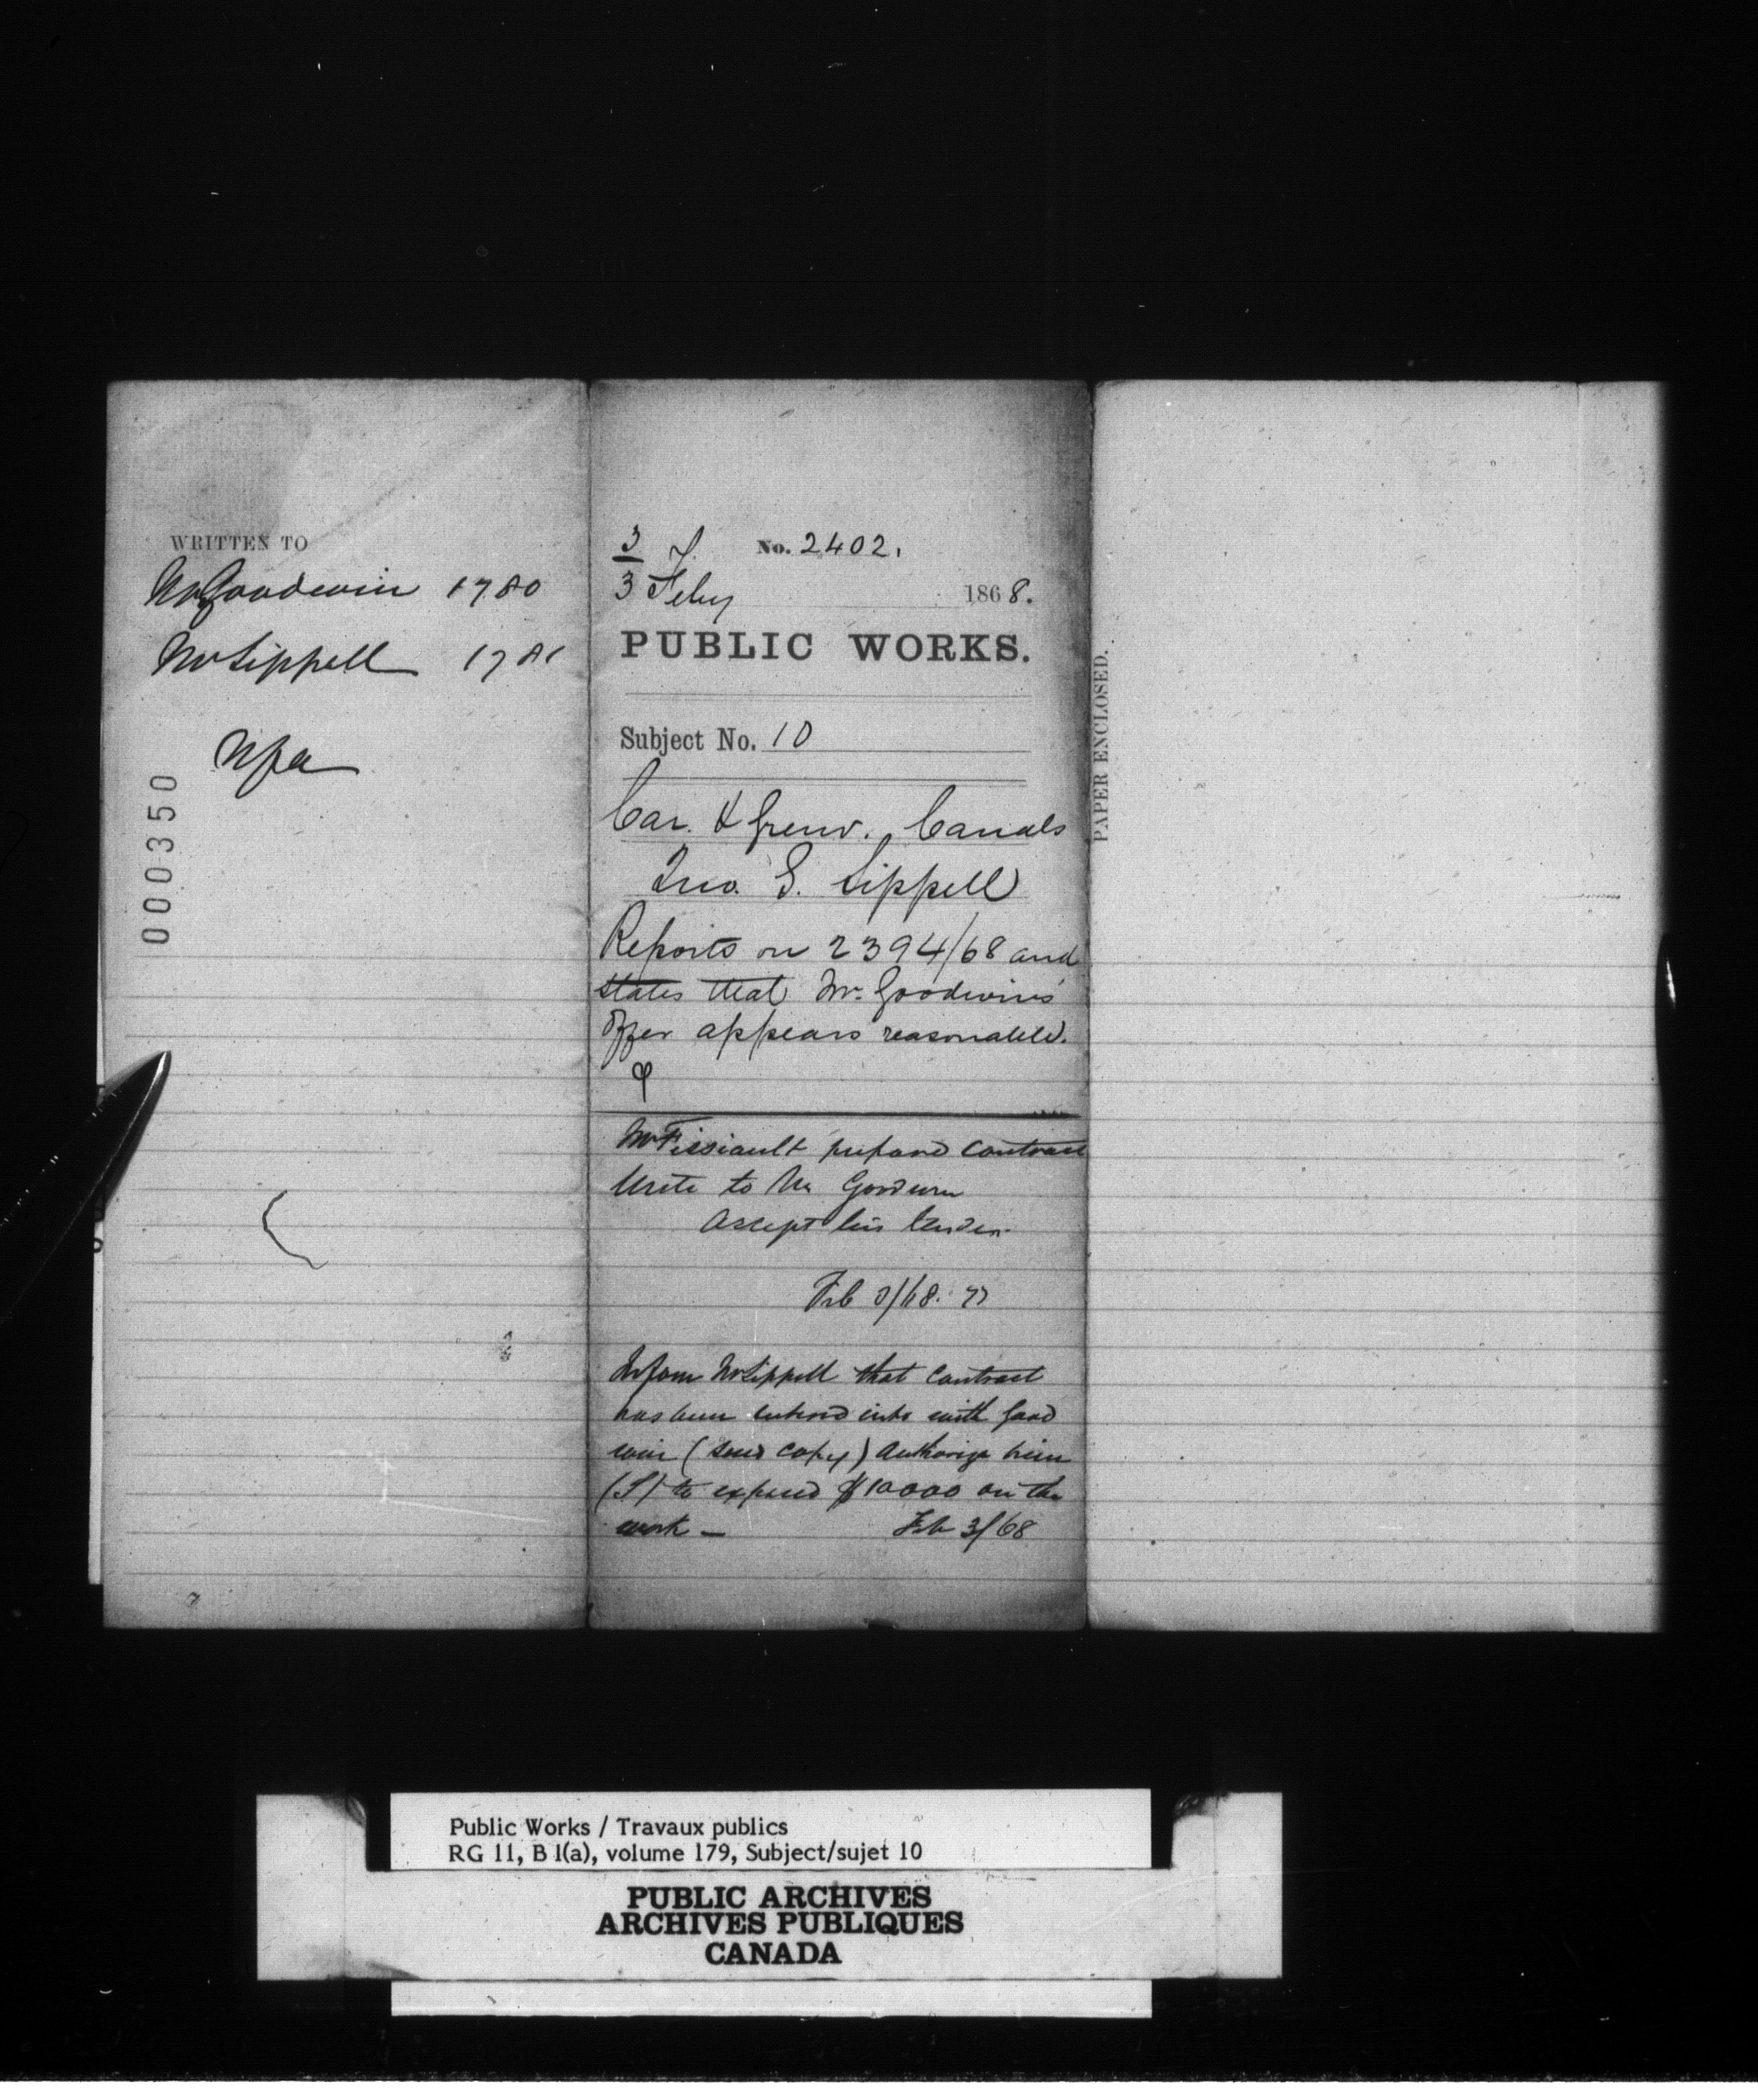 WRITTEN TO
Mr Goodwin 1780
Mr Sippell 1781
000350
3 No. 2402.
3 Feby 1868.
PUBLIC WORKS.
Subject No. 10
Car. & Grenv. Canals
Jno. G. Sippell
Reports on 2394/68 and
states that Mr. Goodwin's
offer appears reasonable.
Mr Fissiault prepare contract
Write to Mr Goodwin
Accept his tender.
Feb 3/68.
Inform Mr Sippell that contract
has been entered into with Good
win (send copy) authorize him
(S) to expend $10000 on the
work — Feb 3/68
PAPER ENCLOSED.
Public Works / Travaux publics
RG 11, B 1(a), volume 179, Subject/sujet 10
PUBLIC ARCHIVES
ARCHIVES PUBLIQUES
CANADA